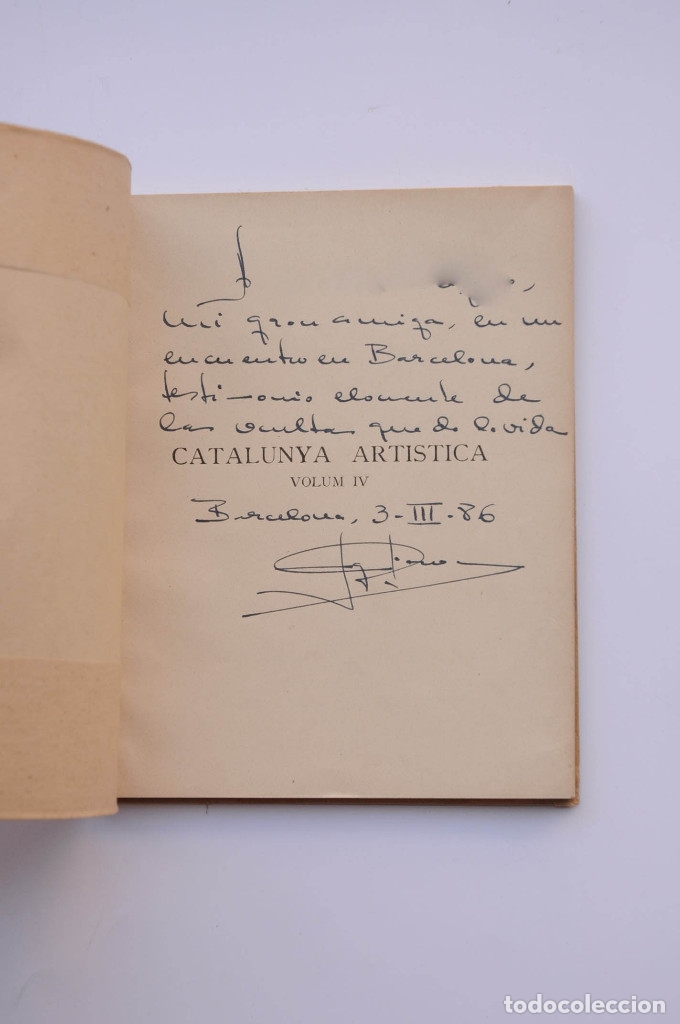 mi gran amiga, en un
encuentro en Barcelona,
testimonio elocuente de
las vueltas que da la vida
CATALUNYA ARTISTICA
VOLUM IV
Barcelona, 3-III-86
todocoleccion